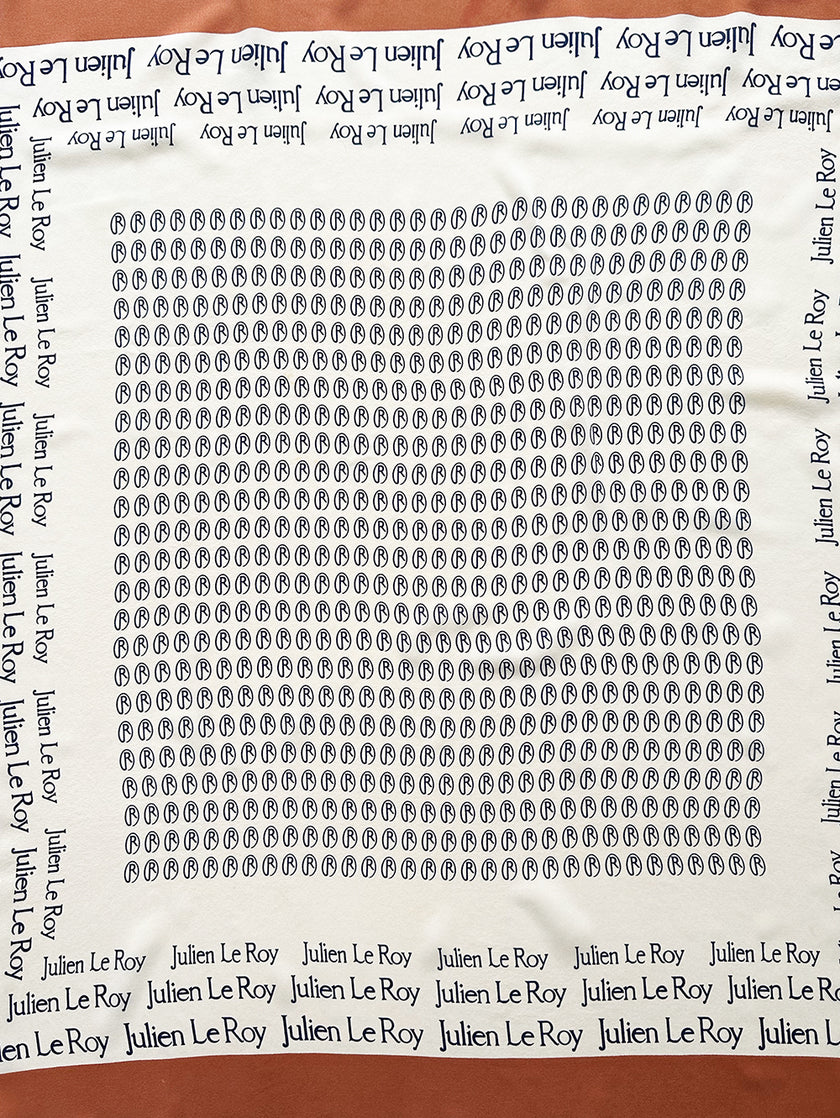 Julien Le Roy Julien Le Roy Julien Le Roy Julien Le Roy
Julien Le Roy Julien Le Roy Julien Le Roy Julien Le Roy Julien Le Roy
Julien Le Roy Julien Le Roy Julien Le Roy Julien Le Roy Julien Le Roy Julien Le Roy
Julien Le Roy Julien Le Roy Julien Le Roy Julien Le Roy Julien Le Roy Julien Le Roy
Julien Le Roy Julien Le Roy Julien Le Roy Julien Le Roy Julien Le Roy Julien Le Roy
Julien Le Roy Julien Le Roy Julien Le Roy Julien Le Roy Julien Le Roy
Julien Le Roy Julien Le Roy Julien Le Roy Julien Le Roy Julien Le Roy Julien Le Roy
Julien Le Roy Julien Le Roy Julien Le Roy Julien Le Roy Julien Le Roy Julien Le
Le Roy Julien Le Roy Julien Le Roy Julien Le Roy Julien Le Roy Julien